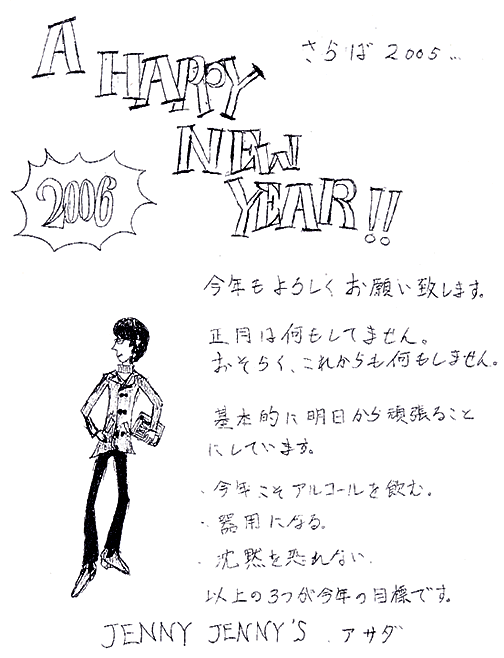 さらば 2005…
A HAPPY
NEW
YEAR!!
2006
今年もよろしくお願い致します。
正月は何もしてません。
おそらく、これからも何もしません。
基本的に明日から頑張ること
にしています。
・今年こそアルコールを飲む。
・器用になる。
・沈黙を恐れない。
以上の3つが今年の目標です。
JENNY JENNY'S アサダ